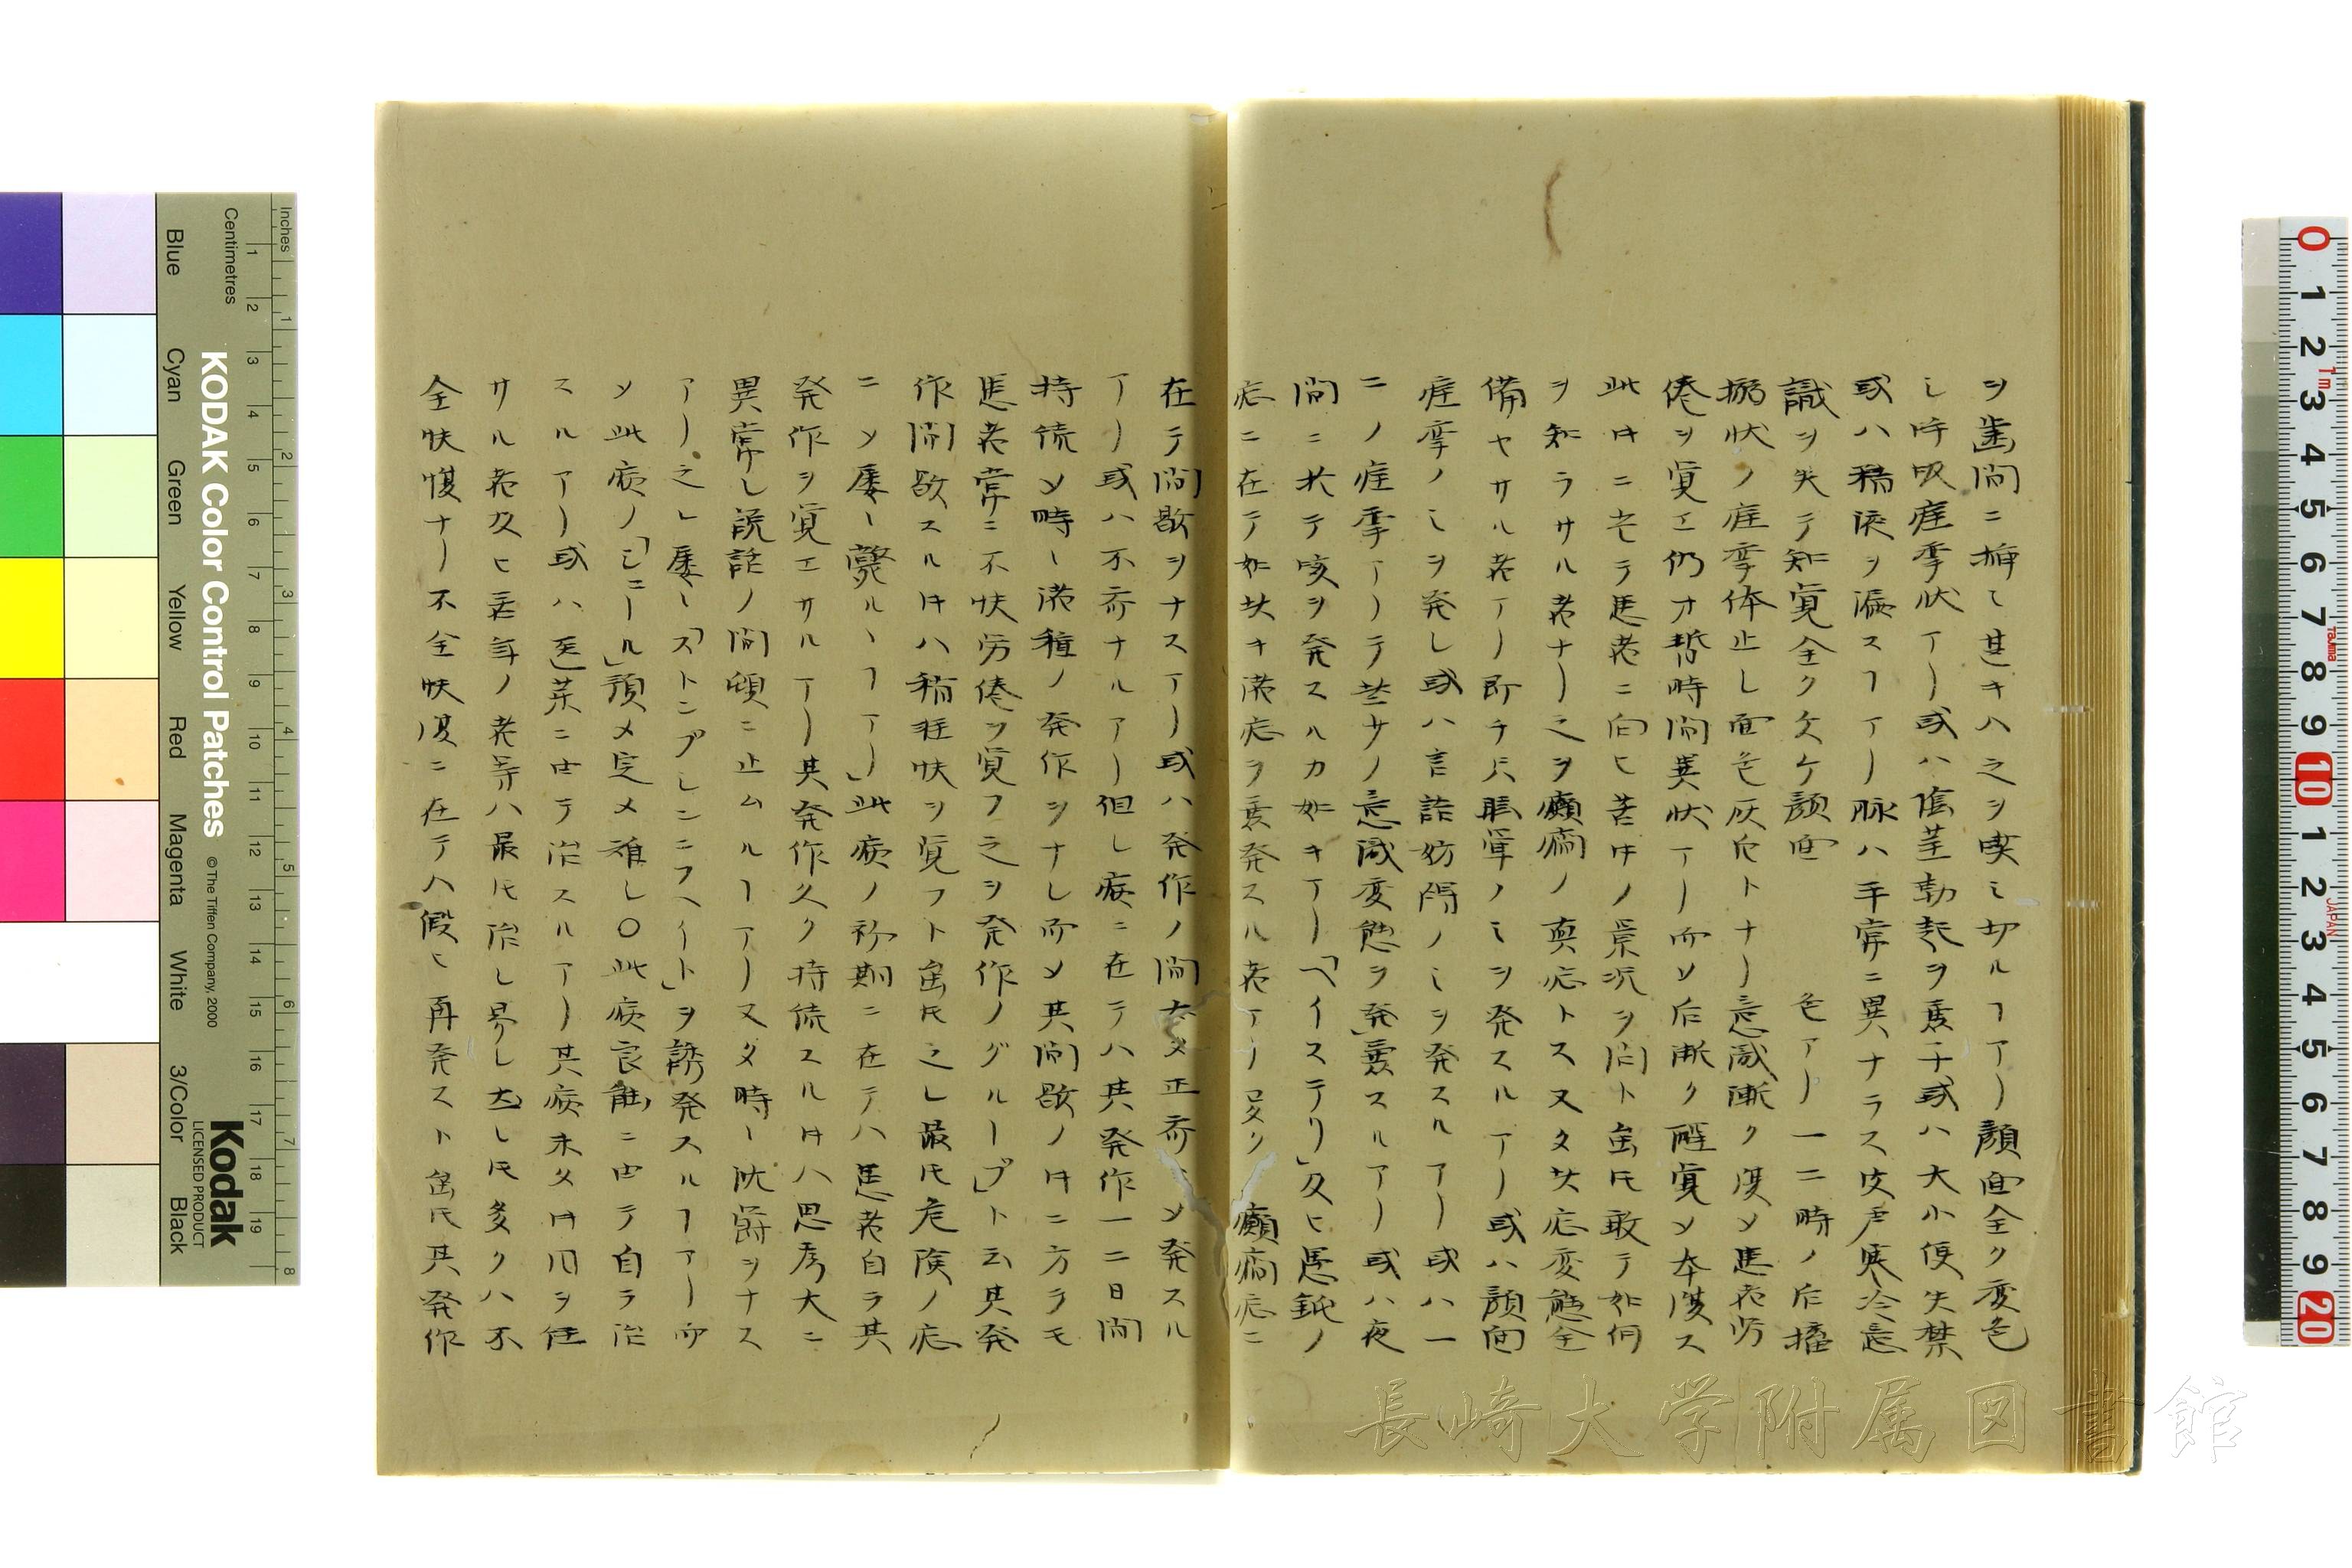 ヲ歯間ニ挿ミ甚キハ之ヲ喫ミ切ルヿアリ顔面全ク変色
シ呼吸痙挛状アリ或ハ陰茎勃起ヲ兼子或ハ大小便失禁
或ハ稀液ヲ漏スヿアリ脉ハ平常ニ異ナラス皮膚寒冷意
識ヲ失テ知覚全ク欠ケ顔面 色アリ一二時ノ后搐
搦状ノ痙挛休止シ面色灰白トナリ意識漸ク復ソ患者労
倦ヲ覚エ仍ホ暫時間異状アリ而ソ后漸ク醒覚ソ本復ス
此時ニ至テ患者ニ向ヒ苦時ノ景况ヲ問ト虽𪜈敢テ如何
ヲ知ラサル者ナリ之ヲ癲癇ノ真症トス又タ其症変態全
備セサル者アリ即チ只眩暈ノミヲ発スルアリ或ハ顔面
痙挛ノミヲ発シ或ハ言語妨碍ノミヲ発スルアリ或ハ一
二ノ痙挛アリテ些少ノ意識変態ヲ発兼スルアリ或ハ夜
間ニ於テ咳ヲ発スルカ如キアリ「ヘイステリ」及ヒ愚鈍ノ
症ニ在テ如此キ諸症ヲ兼発スル者アリ 癲癇症ニ
在テ間歇ヲナスアリ或ハ発作ノ間 正斉ニ発スル
アリ或ハ不斉ナルアリ但シ症ニ在テハ其発作一二日間
持続ソ時々諸種ノ発作ヲナシ而ソ其間歇ノ時ニ方ラモ
患者常ニ不快労倦ヲ覚フ之ヲ発作ノグループ」ト云其発
作間歇スル時ハ稍狂状ヲ覚フト虽𪜈之レ最𪜈危険ノ症
ニソ屡々斃ルヽヿアリ」此病ノ初期ニ在テハ患者自ラ其
発作ヲ覚エサルアリ其発作久ク持続スル時ハ思考大ニ
異常シ説話ノ間頓ニ止ムルヿアリ又タ時々沈欝ヲナス
アリ之レ屡々「ストンプシンニフヘイト」ヲ誘発スルヿアリ而
ソ此病ノ「シニール」預メ定メ難シ〇此病良能ニ由テ自ラ治
スルアリ或ハ医薬ニ由テ治スルアリ其病未タ時月ヲ経
サル者及ヒ壮年ノ者等ハ最𪜈治シ昜シ然シ𪜈多クハ不
全快復ナリ不全快復ニ在テハ假ヒ再発スト虽𪜈其発作
長崎大学附属図書館
KODAK Color Control Patches
© The Tiffen Company, 2000
Kodak
LICENSED PRODUCT
Inches
Centimetres
Blue
Cyan
Green
Yellow
Red
Magenta
White
3/Color
Black